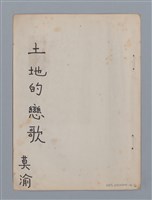 土地的戀歌
莫渝